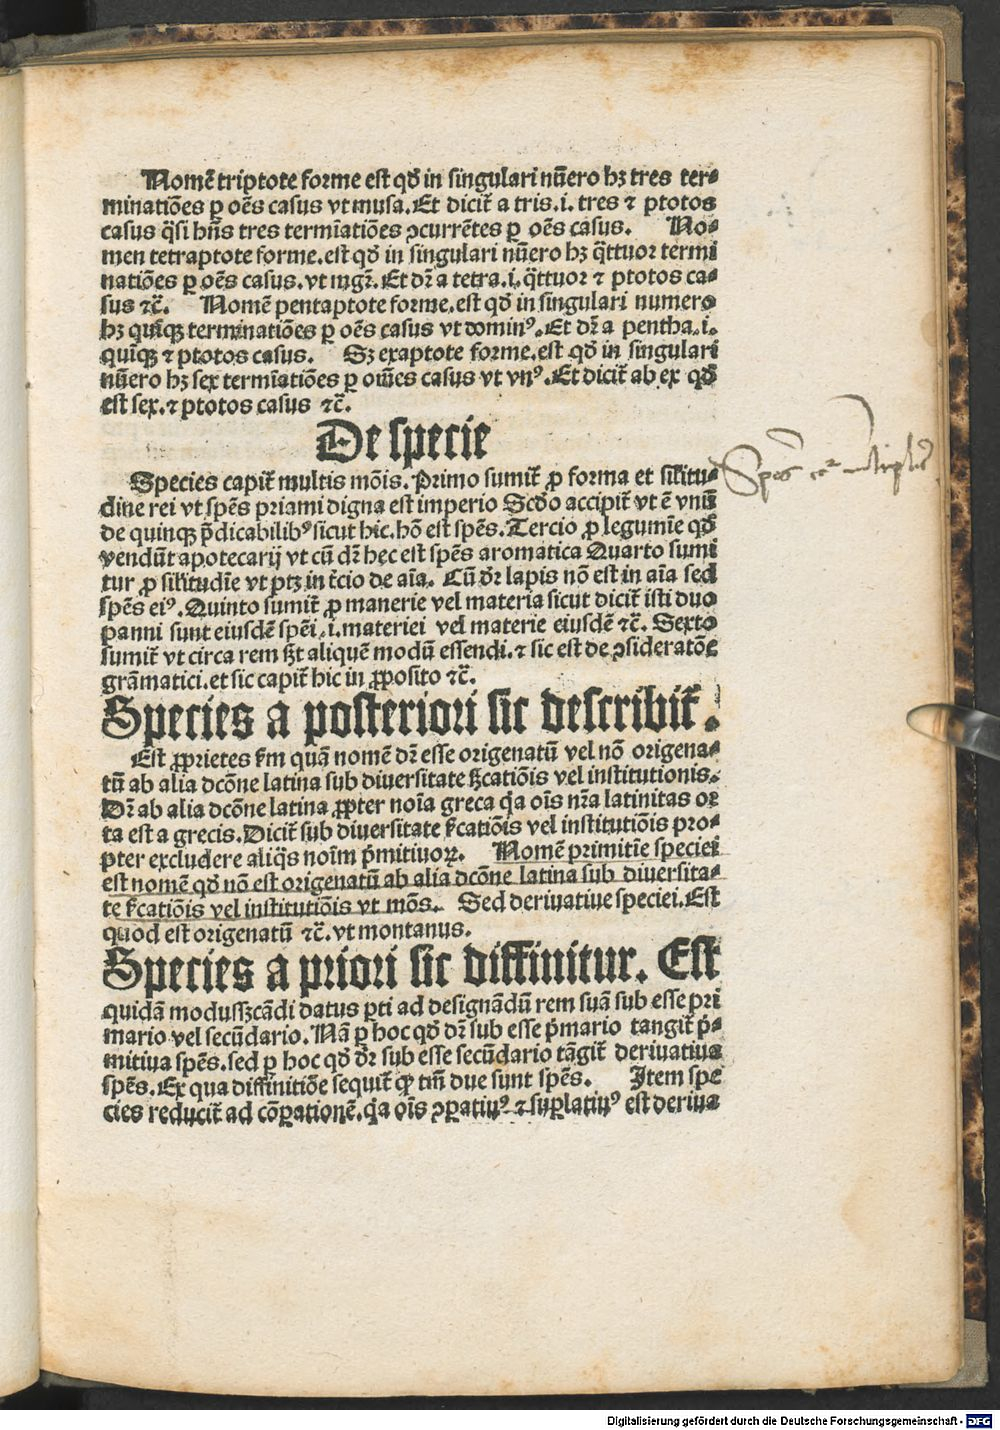 Nomē triptote forme est qď in singulari nūero hꝫ tres ter⸗
minatiōes ꝑ oēs casus vt musa. Et diciť a tris .i. tres ⁊ ptotos
casus q̄si hn̄s tres termīatiōes ꝯcurrētes ꝑ oēs casus. No⸗
men tetraptote forme. est qď in singulari nūero hꝫ q̄ttuor termi
natiōes ꝑ oēs casus. vt mgr̄. Et dr̄ a tetra .i. q̄ttuor ⁊ ptotos ca⸗
sus ⁊c̄. Nomē pentaptote forme. est qď in singulari numero
hꝫ quīqꝫ terminatiōes ꝑ oēs casus vt dominꝰ. Et dr̄ a pentha .i.
quīqꝫ ⁊ ptotos casus. Sꝫ exaptote forme. est qď in singulari
nūero hꝫ sex termīatiōes ꝑ om̄es casus vt vnꝰ. Et diciť ab ex qď
est sex. ⁊ ptotos casus ⁊c̄.
De specie
Species capiť multis mōis. Primo sumiť ꝓ forma et sil̄itu⸗
dine rei vt spēs priami digna est imperio Scďo accipiť vt ē vnū
de quinqꝫ p̄dicabilibꝰ sicut hic. hō est spēs. Tercio ꝓ legumīe qď
vendūt apotecarij vt cū dr̄ hec est spēs aromatica Quarto sumi
tur ꝓ sil̄itudīe vt ptꝫ in ťcio de aīa. Cū dr̄ lapis nō est in aīa sed
spēs eiꝰ. Quinto sumiť ꝓ manerie vel materia sicut diciť isti duo
panni sunt eiusdē spēi .i. materiei vel materie eiusdē ⁊c̄. Sexto
sumiť vt circa rem ẜt aliquē modū essendi. ⁊ sic est de ꝯsideratōe
grāmatici. et sic capiť hic in ꝓposito ⁊c̄.
Species a posteriori sic describiť.
Est ꝓprietes ẜm quā nomē dr̄ esse origenatū vel nō origena⸗
tū ab alia dcōne latina sub diuersitate ẜcatiōis vel institutionis.
Dr̄ ab alia dcōne latina ꝓpter noīa greca q̇a oīs nr̄a latinitas or
ta est a grecis. Diciť sub diuersitate ẜcatiōis vel institutiōis pro⸗
pter excludere aliq̇s noīm p̄mitiuoꝝ. Nomē primitie speciei
est nomē qď nō est origenatū ab alia dcōne latina sub diuersita⸗
te ẜcatiōis vel institutiōis vt mōs. Sed deriuatiue speciei. Est
quod est origenatū ⁊c̄. vt montanus.
Species a priori sic diffinitur. Est
quidā modusẜcādi datus ꝑti ad designādū rem suā sub esse pri
mario vel secūdario. Nā ꝑ hoc qď dr̄ sub esse p̄mario tangiť p̄⸗
mitiua spēs. sed ꝑ hoc qď dr̄ sub esse secūdario tāgiť deriuatiua
spēs. Ex qua diffinitiōe sequiť ꝙ tm̄ due sunt spēs. Item spe
cies reduciť ad cōꝑationē. q̇a oīs ꝯꝑatiuꝰ ⁊ suꝑlatiuꝰ est deriua
Digitalisierung gefördert durch die Deutsche Forschungsgemeinschaft - DFG